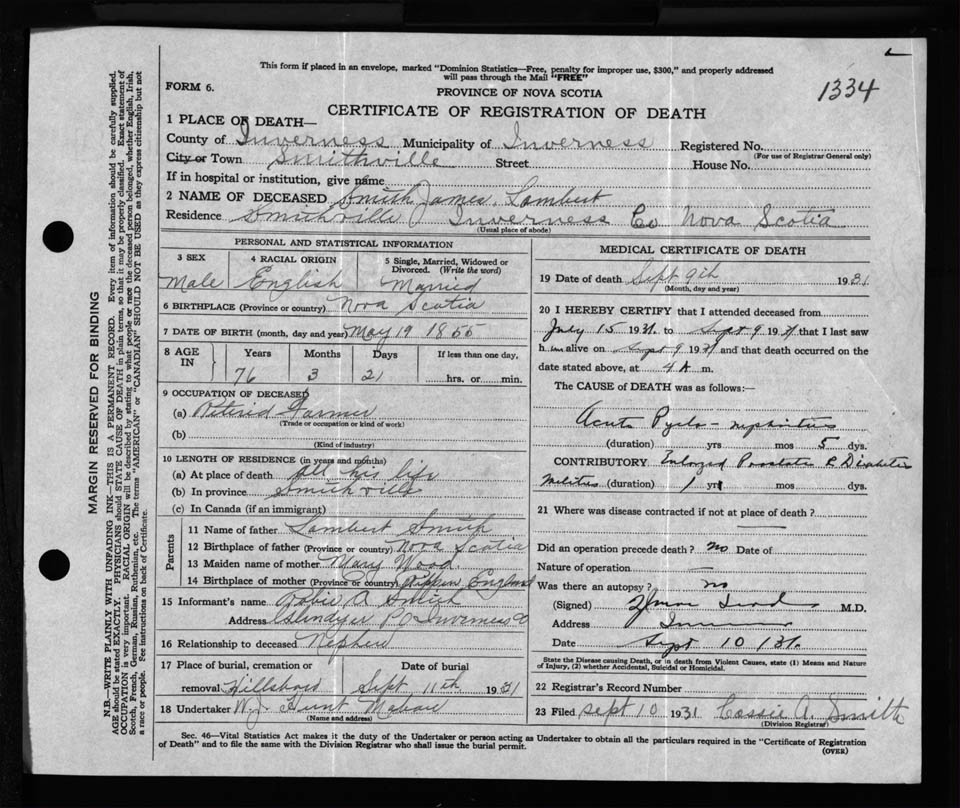 This form if placed in an envelope, marked "Dominion Statistics—Free, penalty for improper use, $300," and properly addressed
will pass through the Mail "FREE"
FORM 6.
PROVINCE OF NOVA SCOTIA
1334
CERTIFICATE OF REGISTRATION OF DEATH
MARGIN RESERVED FOR BINDING
N.B.—WRITE PLAINLY WITH UNFADING INK—THIS IS A PERMANENT RECORD. Every item of information should be carefully supplied.
AGE should be stated EXACTLY. PHYSICIANS should STATE CAUSE OF DEATH in plain terms, so that it may be properly classified. Exact statement of
OCCUPATION is very important. RACIAL ORIGIN will be described by stating to what people or race the deceased person belonged, whether English, Irish,
Scotch, French, German, Russian, Ruthenian, etc. The terms "AMERICAN" or "CANADIAN" SHOULD NOT BE USED as they express citizenship but not
a race or people. See instructions on back of Certificate.
1 PLACE OF DEATH—
County of Inverness Municipality of Inverness Registered No.
(For use of Registrar General only)
City or Town Smithville Street House No.
If in hospital or institution, give name
2 NAME OF DECEASED Smith James Lambert
Residence Smithville Inverness Co Nova Scotia
(Usual place of abode)
PERSONAL AND STATISTICAL INFORMATION
3 SEX 4 RACIAL ORIGIN 5 Single, Married, Widowed or Divorced. (Write the word)
Male English Married
6 BIRTHPLACE (Province or country) Nova Scotia
7 DATE OF BIRTH (month, day and year) May 19 1855
8 AGE IN Years Months Days If less than one day,
76 3 21 hrs. or min.
9 OCCUPATION OF DECEASED
(a) Retired Farmer
(Trade or occupation or kind of work)
(b)
(Kind of industry)
10 LENGTH OF RESIDENCE (in years and months)
(a) At place of death all his life
(b) In province Smithville
(c) In Canada (if an immigrant)
Parents
11 Name of father Lambert Smith
12 Birthplace of father (Province or country) Nova Scotia
13 Maiden name of mother Mary Hood
14 Birthplace of mother (Province or country) England
15 Informant's name A Smith
Address Glendyer Inverness Co
16 Relationship to deceased Nephew
17 Place of burial, cremation or Date of burial
removal Hillsboro Sept 11th 1931
18 Undertaker W.J. Hunt Mabou
(Name and address)
MEDICAL CERTIFICATE OF DEATH
19 Date of death Sept 9th 1931
(Month, day and year)
20 I HEREBY CERTIFY that I attended deceased from
July 15 1931 to Sept 9 1931 that I last saw
h im alive on Sept 9 1931 and that death occurred on the
date stated above, at 4 A m.
The CAUSE of DEATH was as follows:—
Acute Pyelo-nephritis
(duration) yrs mos 5 dys.
CONTRIBUTORY Enlarged Prostate & Diabetes
Melitus (duration) 1 yrs mos dys.
21 Where was disease contracted if not at place of death?
Did an operation precede death? no Date of
Nature of operation
Was there an autopsy? no
(Signed) M.D.
Address
Date Sept 10 /31.
State the Disease causing Death, or in death from Violent Causes, state (1) Means and Nature
of Injury, (2) whether Accidental, Suicidal or Homicidal.
22 Registrar's Record Number
23 Filed Sept 10 1931 Cassie A. Smith
(Division Registrar)
Sec. 46—Vital Statistics Act makes it the duty of the Undertaker or person acting as Undertaker to obtain all the particulars required in the "Certificate of Registration
of Death" and to file the same with the Division Registrar who shall issue the burial permit.
(OVER)